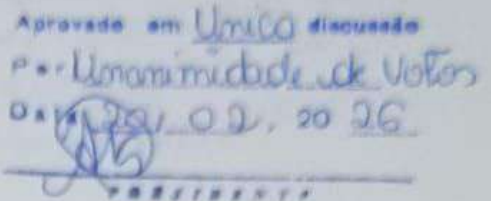 Aprovado em Unico discussão
Por Unanimidade de Votos
Data 20, 02, 20 26
PRESIDENTE